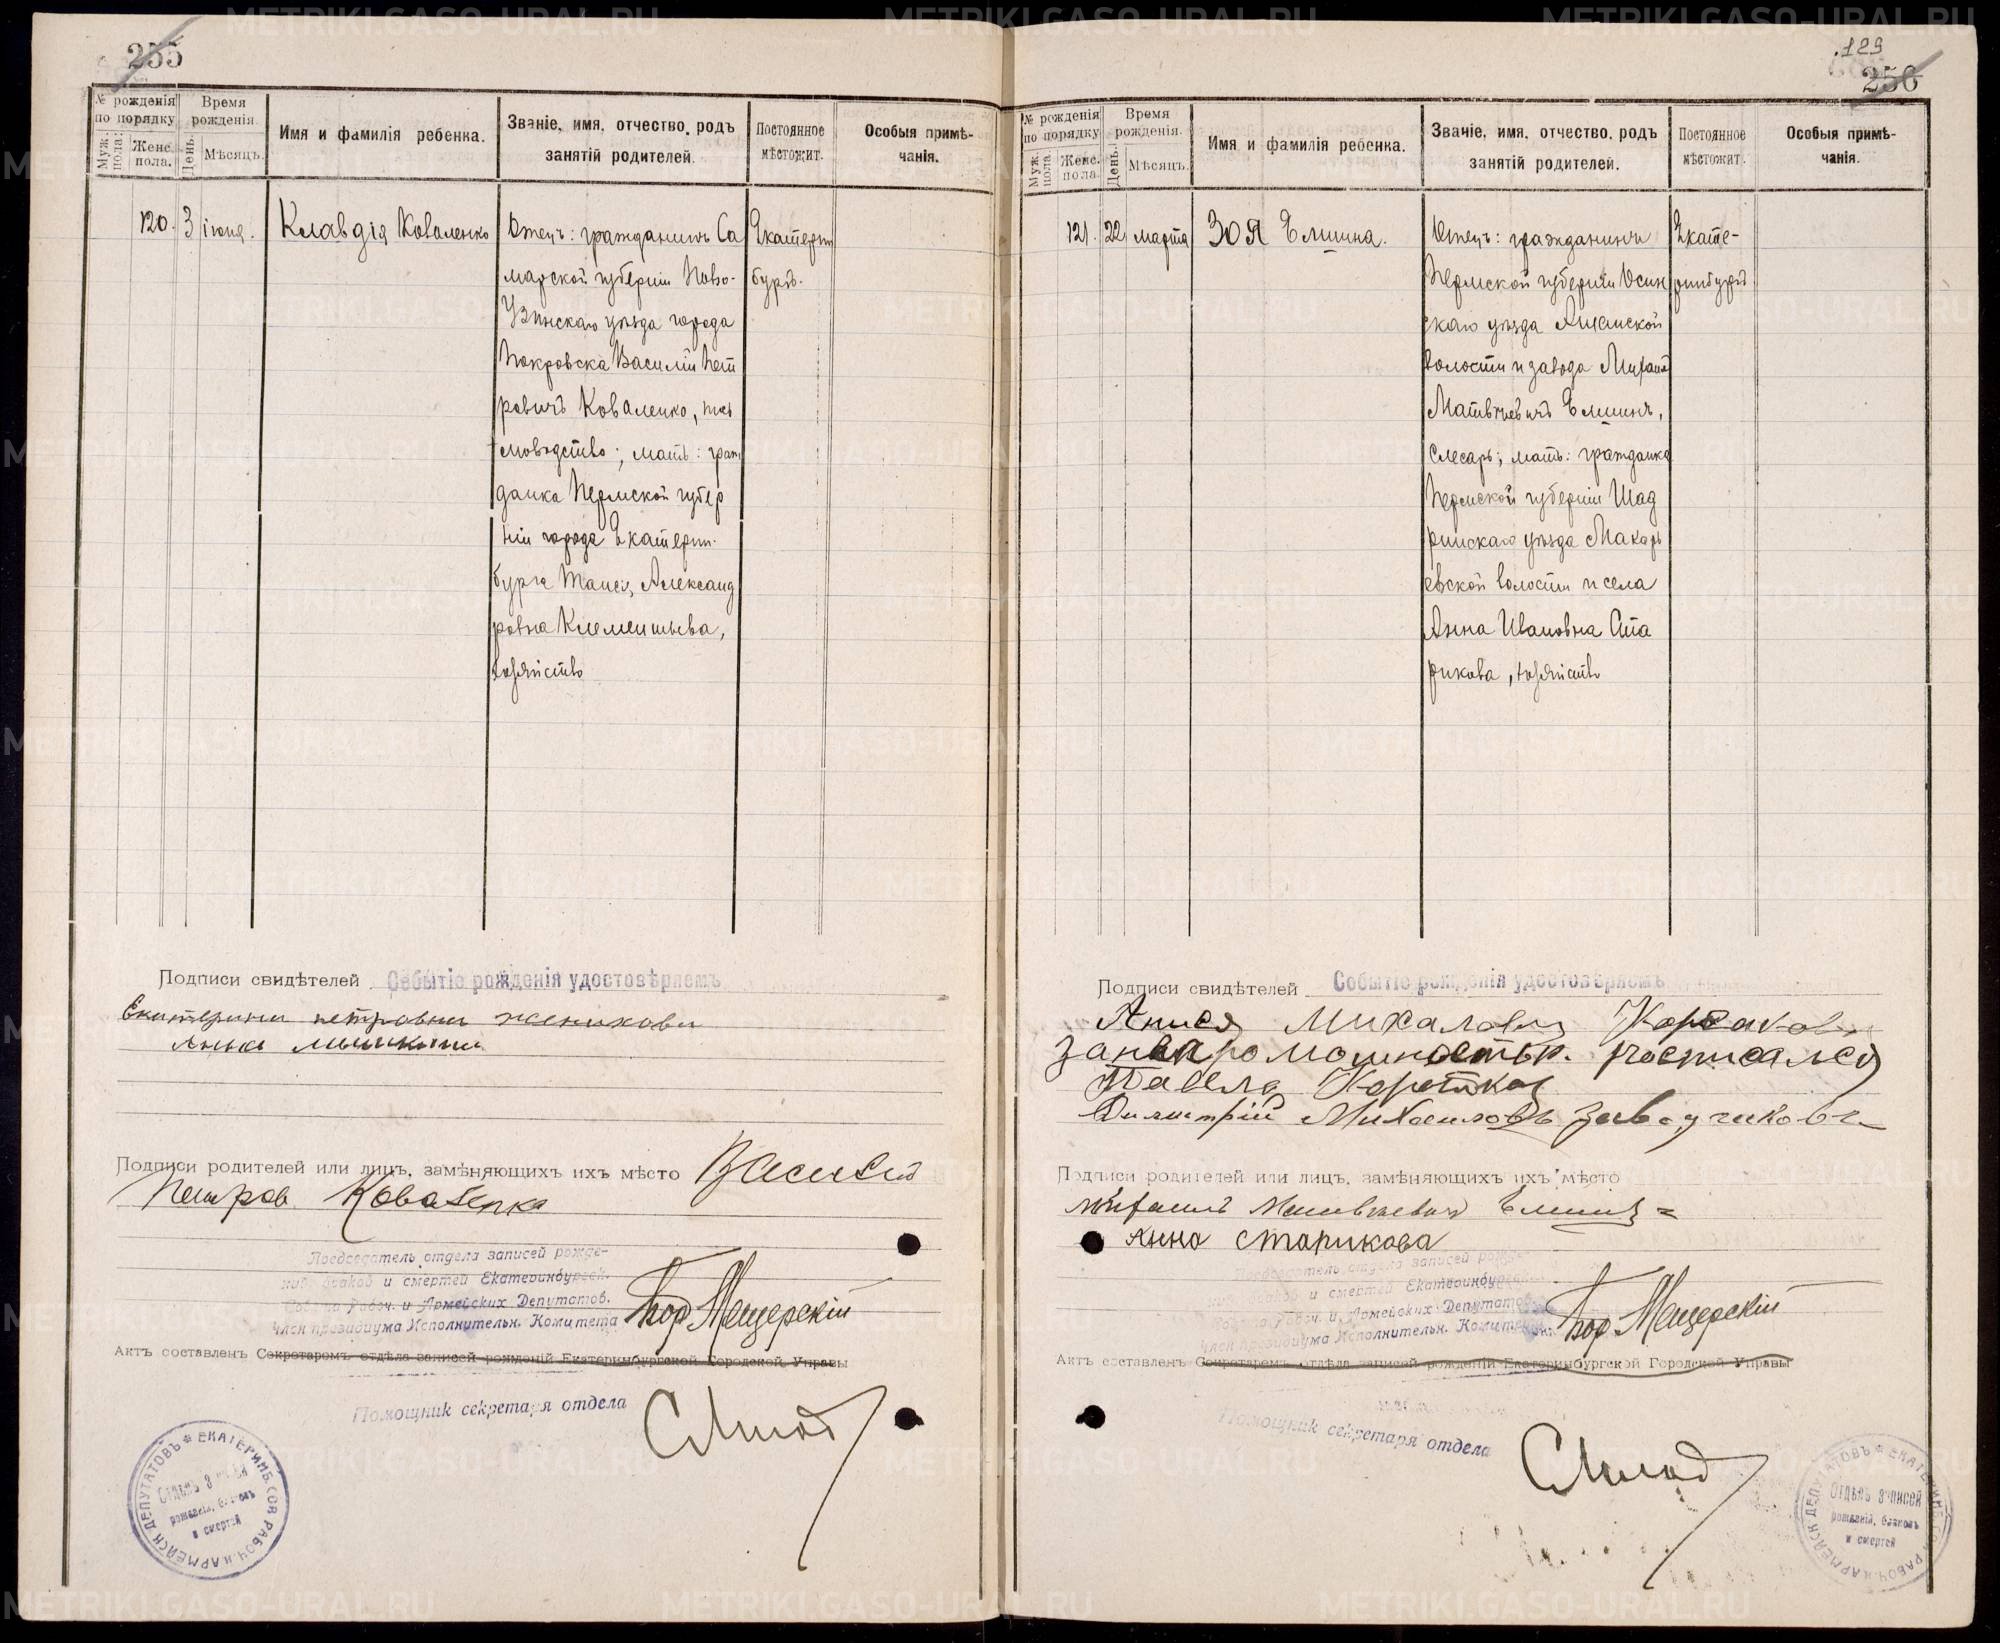 255
№ рожденія по порядку
Муж. пола.
Женс. пола.
Время рожденія.
День.
Мѣсяцъ.
Имя и фамилія ребенка.
Званіе, имя, отчество, родъ
занятій родителей.
Постоянное
мѣстожит.
Особыя примѣ-
чанія.
120. 3 іюня. Клавдія Коваленко
Отецъ: гражданинъ Са
марской губерніи Ново-
Узинскаго уѣзда города
Покровска Василій Пет
ровичъ Коваленко,
мать: граж
данка Пермской губер
ніи города Екатерин-
бурга Таисія Александ
ровна Клементьева,
хозяйство
Екатерин
бургъ.
Подписи свидѣтелей Событіе рожденія удостовѣряемъ
Екатерина петровна женихова
Анна
Подписи родителей или лицъ, замѣняющихъ ихъ мѣсто Василий
Петров Коваленко
Председатель отдела записей рожде-
ний браков и смертей Екатеринбургск.
Совета Рабоч. и Армейских Депутатов.
Член президиума Исполнительн. Комитета
Мещерскій
Актъ составленъ Секретаремъ отдѣла записей рожденій Екатеринбургской Городской Управы
Помощник секретаря отдела
ЕКАТЕРИНБ. СОВ. РАБОЧ. И АРМЕЙСК. ДЕПУТАТОВЪ
Отдѣлъ записей
рожденій, браковъ
и смертей
129
256
№ рожденія по порядку
Муж. пола
Женс. пола
Время рожденія.
День.
Мѣсяцъ.
Имя и фамилія ребенка.
Званіе, имя, отчество, родъ
занятій родителей.
Постоянное
мѣстожит.
Особыя примѣ-
чанія.
121. 22 марта Зоя Елшина.
Отецъ: гражданинъ
Пермской губерніи Осин
скаго уѣзда
волости и завода Михаилъ
Матвѣевичъ Елшинъ,
слесарь; мать: гражданка
Пермской губерніи Шад
ринскаго уѣзда Макарь
евской волости и села
Анна Ивановна Ста
рикова, хозяйство
Екате-
ринбургъ
Подписи свидѣтелей Событіе рожденія удостовѣряемъ
Анисия Михаловна
росписался
Павелъ
Димитрій Михаиловъ
Подписи родителей или лицъ, замѣняющихъ ихъ мѣсто
Михаилъ Матвѣевичъ Елшинъ
Анна Старикова
Председатель отдела записей рожде-
ний браков и смертей Екатеринбургск.
Совета Рабоч. и Армейских Депутатов.
Член президиума Исполнительн. Комитета
Мещерскій
Актъ составленъ Секретаремъ отдѣла записей рожденій Екатеринбургской Городской Управы
Помощник секретаря отдела
ЕКАТЕРИНБ. СОВ. РАБОЧ. И АРМЕЙСК. ДЕПУТАТОВЪ
Отдѣлъ записей
рожденій, браковъ
и смертей
METRIKI.GASO-URAL.RU